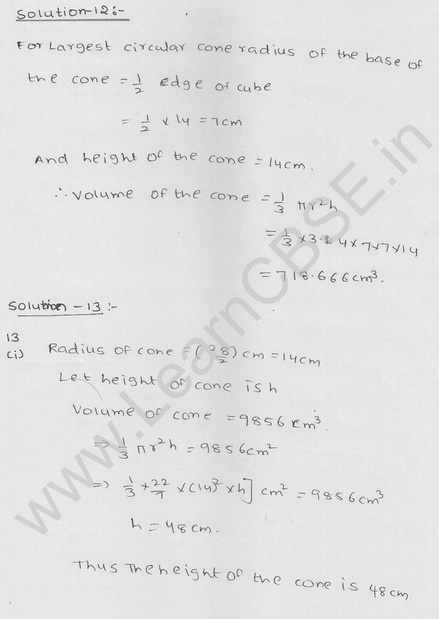 Solution-12:-
For Largest circular cone radius of the base of
the cone = 1/2 edge of cube
= 1/2 × 14 = 7cm
And height of the cone = 14cm.
∴ Volume of the cone = 1/3 πr²h
= 1/3 × 3.14 × 7 × 7 × 14
= 718.666 cm³.
Solution - 13 :-
13
(i) Radius of cone = (28/2) cm = 14cm
Let height of cone is h
Volume of cone = 9856 cm³.
⇒ 1/3 πr²h = 9856cm²
⇒ 1/3 × 22/7 × (14)² × h] cm² = 9856cm³
h = 48cm.
Thus The height of the cone is 48cm.
www.LearnCBSE.in